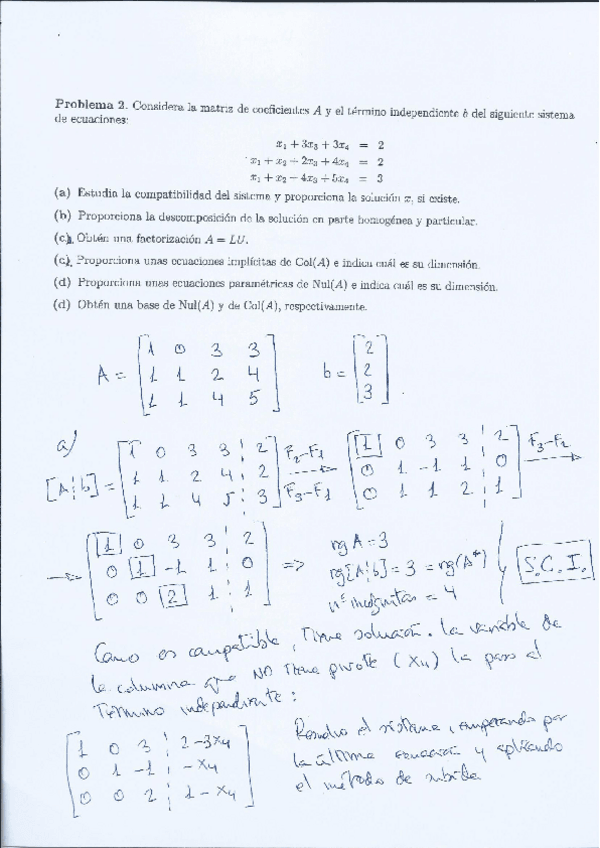 Problema 2. Considera la matriz de coeficientes A y el término independiente b del siguiente sistema
de ecuaciones:
x₁ + 3x₃ + 3x₄ = 2
x₁ + x₂ + 2x₃ + 4x₄ = 2
x₁ + x₂ + 4x₃ + 5x₄ = 3
(a) Estudia la compatibilidad del sistema y proporciona la solución x, si existe.
(b) Proporciona la descomposición de la solución en parte homogénea y particular.
(c) Obtén una factorización A = LU.
(c) Proporciona unas ecuaciones implícitas de Col(A) e indica cuál es su dimensión.
(d) Proporciona unas ecuaciones paramétricas de Nul(A) e indica cuál es su dimensión.
(d) Obtén una base de Nul(A) y de Col(A), respectivamente.
A = [1 0 3 3 b = [2
1 1 2 4 2
1 1 4 5] 3].
a)
1 0 3 3 ¦ 2 F₂-F₁ 1 0 3 3 ¦ 2 F₃-F₂
[A¦b] = 1 1 2 4 ¦ 2 → 0 1 -1 1 ¦ 0 →
1 1 4 5 ¦ 3 F₃-F₁ 0 1 1 2 ¦ 1
1 0 3 3 ¦ 2 rg A = 3
→ 0 1 -1 1 ¦ 0 => rg[A¦b] = 3 = rg(A*) S.C.I.
0 0 2 1 ¦ 1 nº incógnitas = 4
Como es compatible, tiene solución. La variable de
la columna que NO tiene pivote (x₄) la paso al
término independiente:
1 0 3 ¦ 2-3x₄
0 1 -1 ¦ -x₄
0 0 2 ¦ 1-x₄
Resuelvo el sistema, empezando por
la última ecuación y aplicando
el método de subida